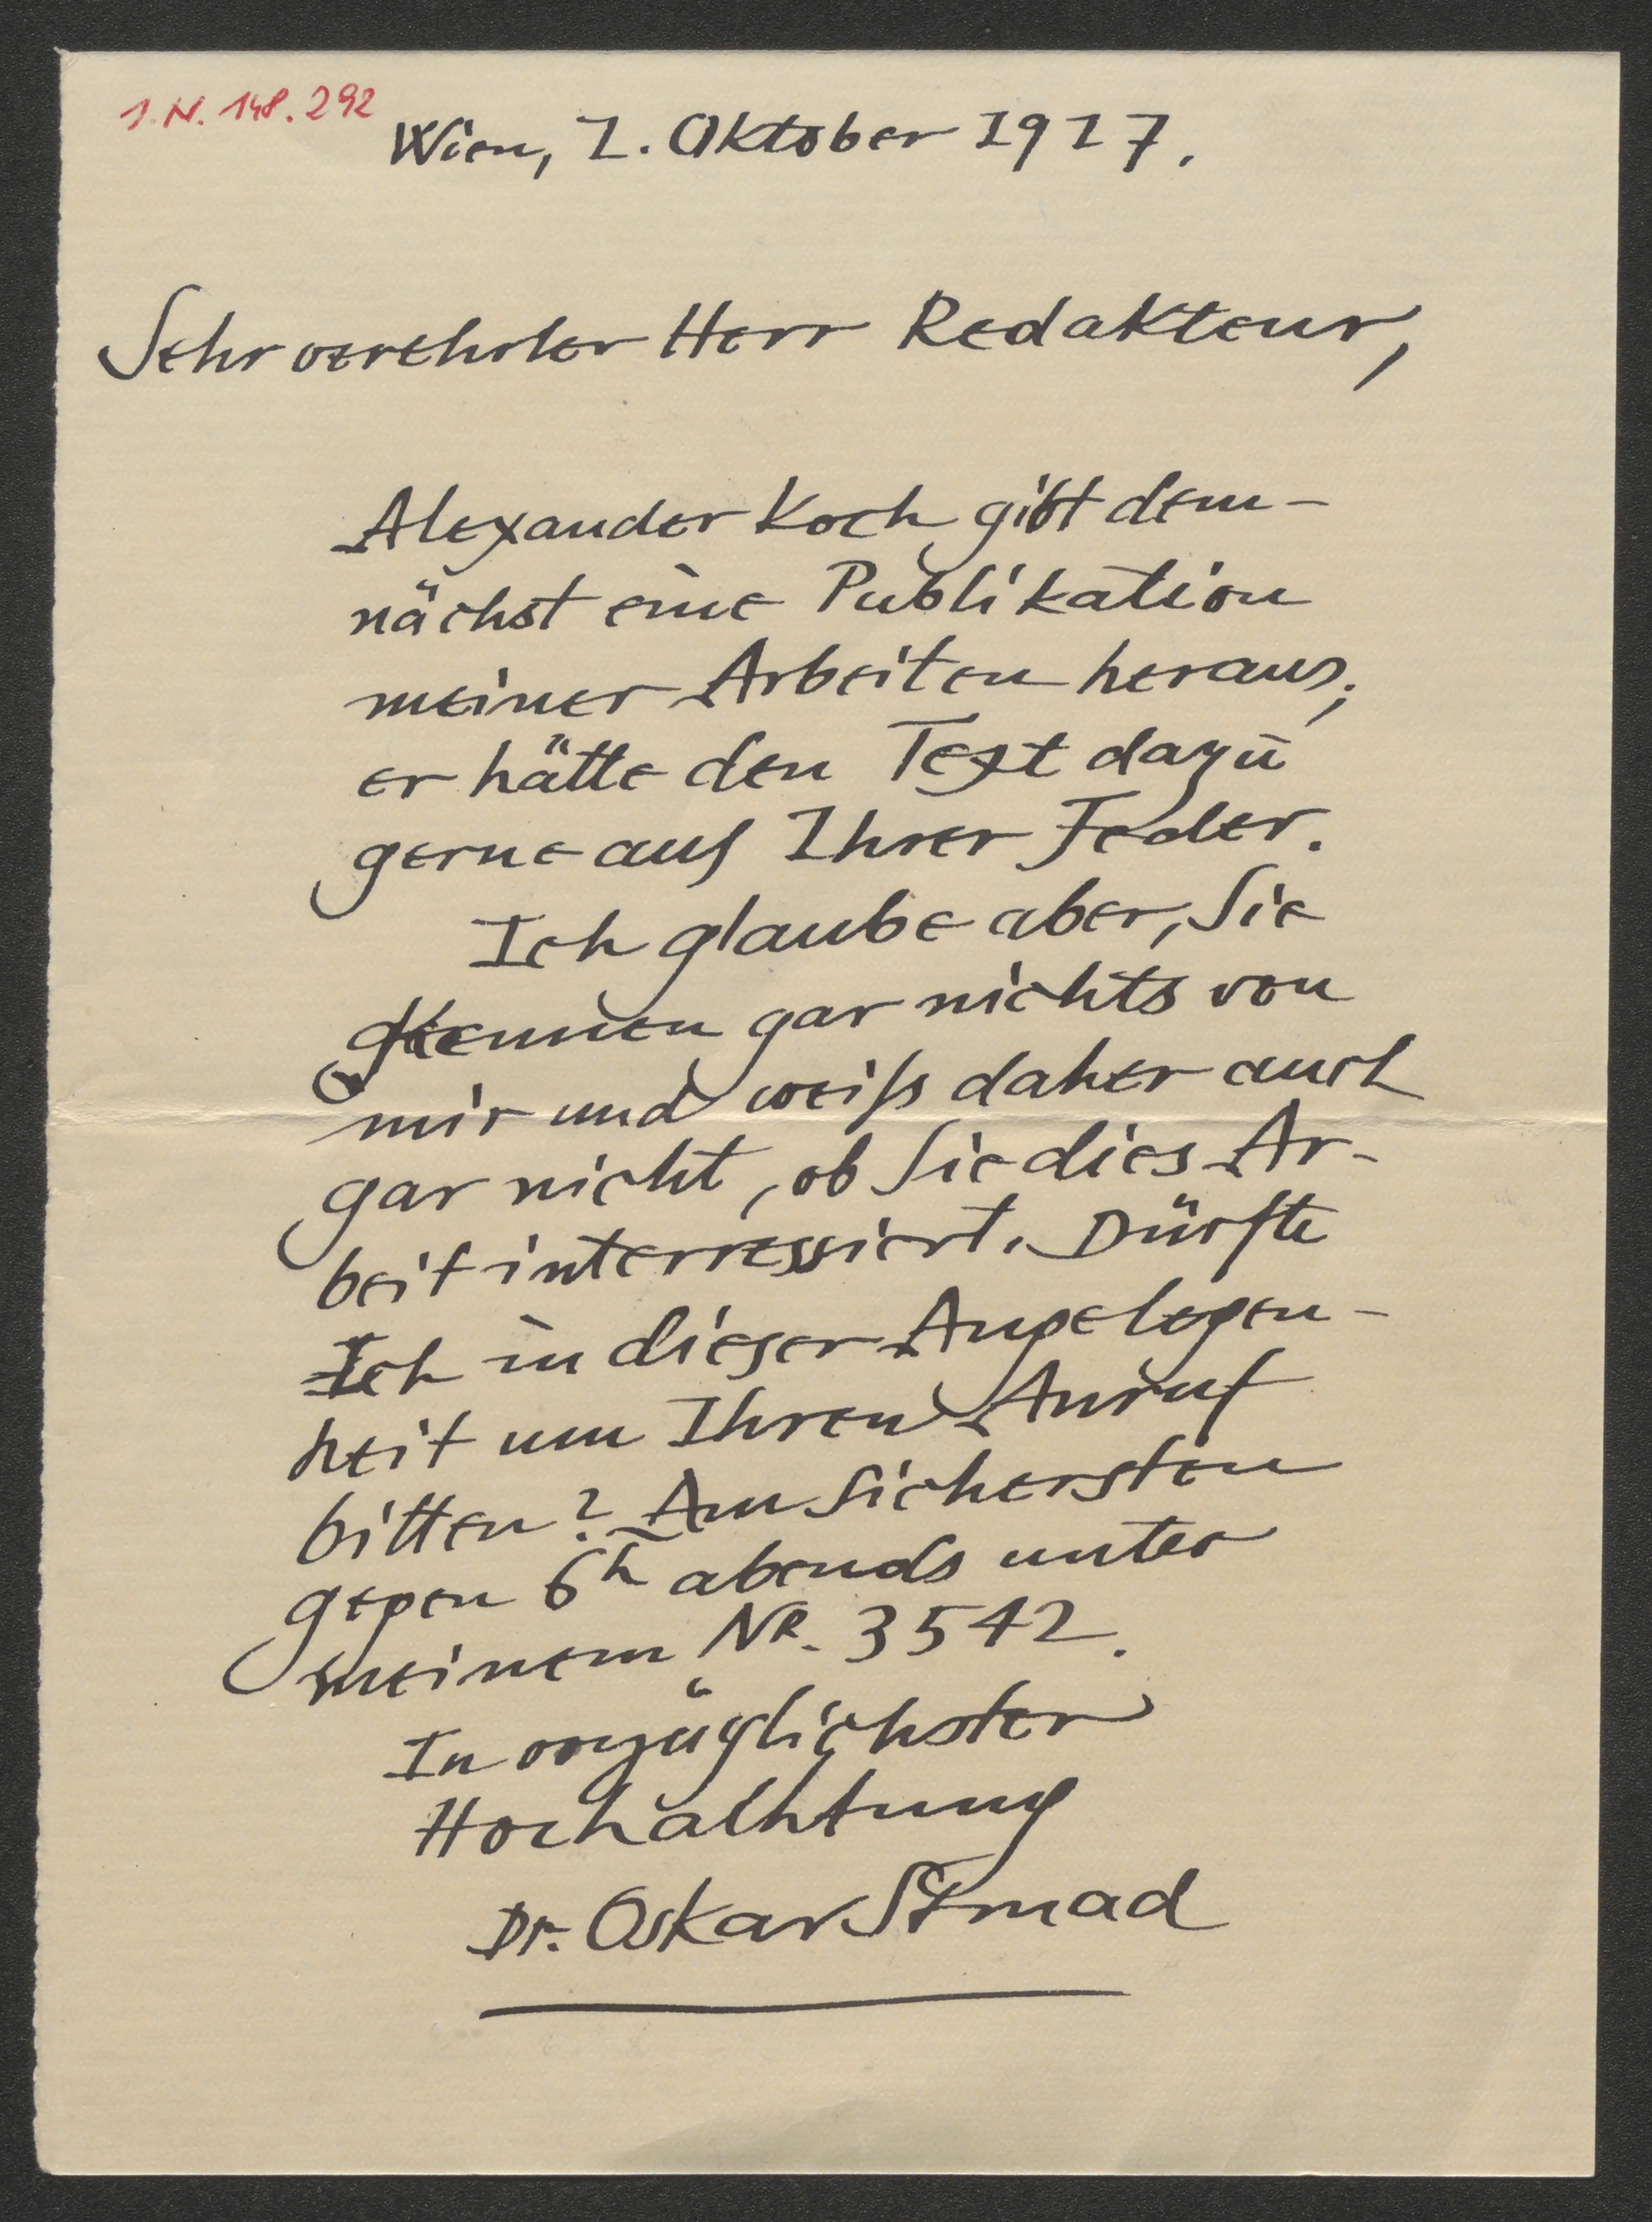 I.N. 148.292
Wien, 1. Oktober 1917.
Sehr verehrter Herr Redakteur,
Alexander Koch gibt dem-
nächst eine Publikation
meiner Arbeiten heraus;
er hätte den Text dazu
gerne aus Ihrer Feder.
Ich glaube aber, Sie
kennen gar nichts von
mir und weiß daher auch
gar nicht, ob Sie dies Ar-
beit interressiert. Dürfte
Ich in dieser Angelegen-
heit um Ihren Anruf
bitten? Am sichersten
gegen 6h abends unter
meinem NR. 3542.
In vorzüglichster
Hochachtung
Dr. Oskar Strnad